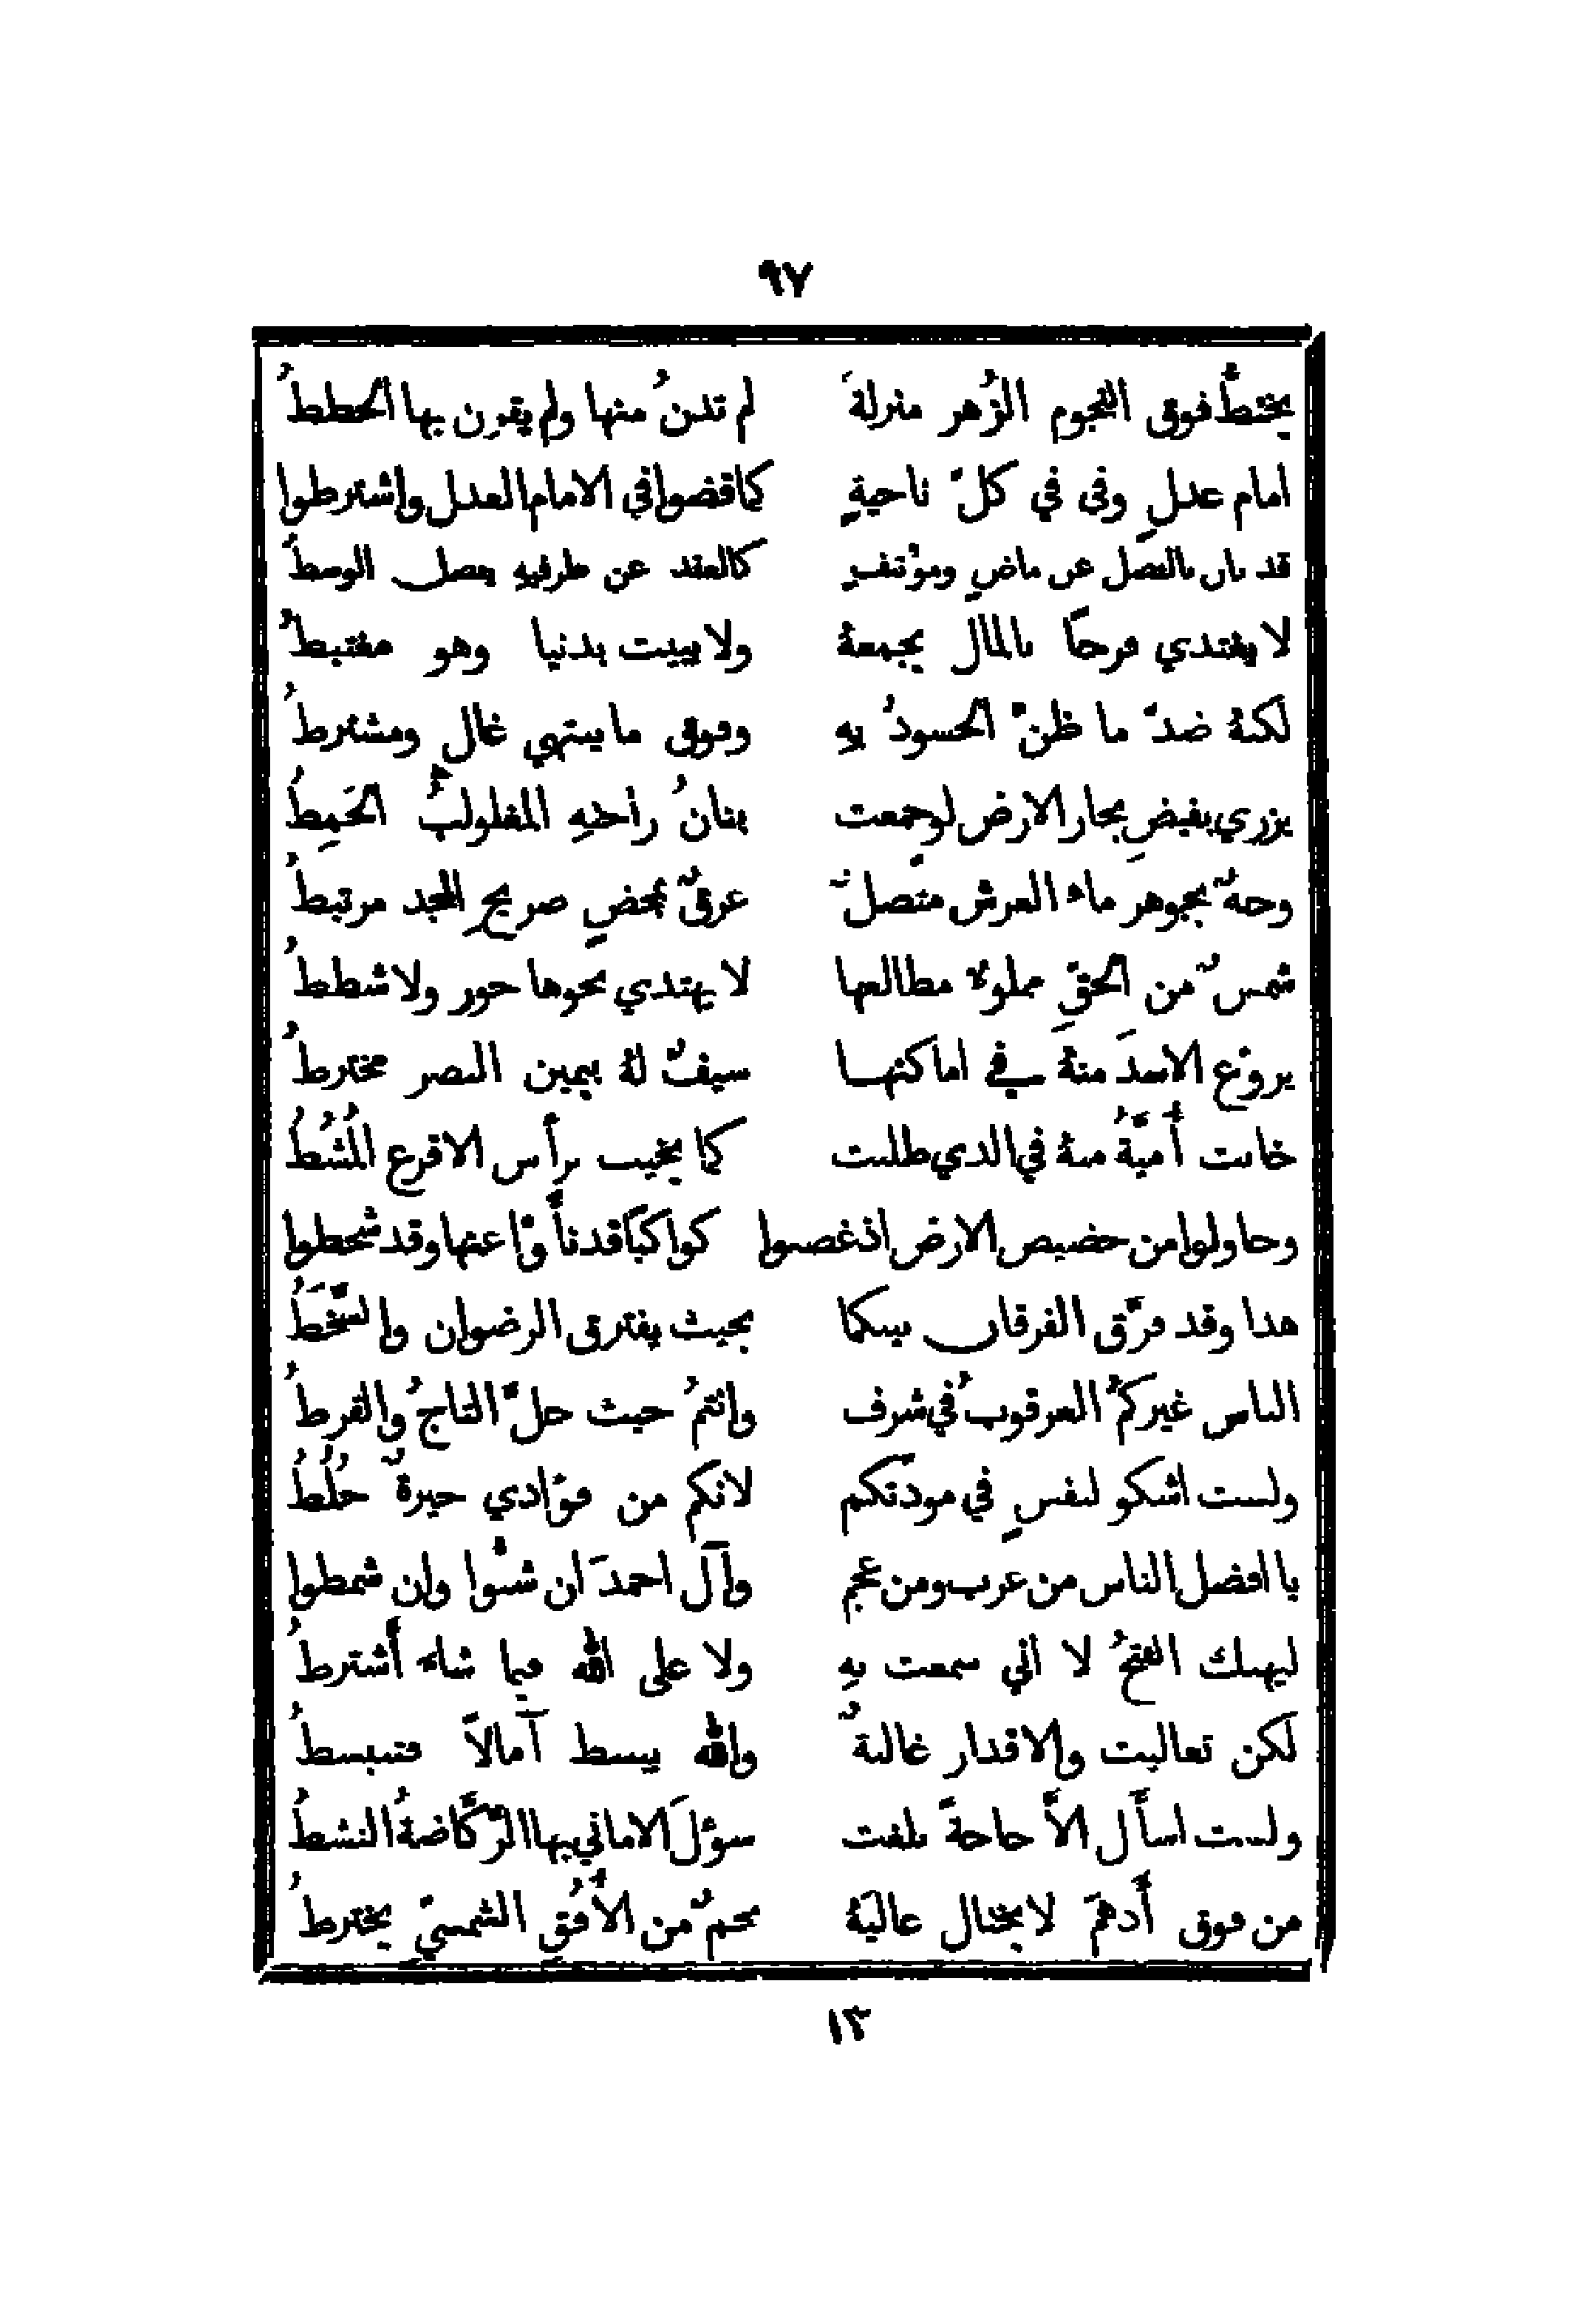 ٩٧
يختطُّ فوق النجوم الزُهر منزلةً لم تدنُ منها ولم يقرن بها الخططُ
امام عدلٍ وفى في كلّ ناحيةٍ كما قضوا في الامام العدل واشترطوا
قد بان بالفصل عن ماضٍ ومؤتنفٍ كالعقد عن طرفيهِ يفصل الوسطُ
لا يغتدي فرحًا بالمال يجمعهُ ولا يبيت بدنيا وهو مغتبطُ
لكنهُ ضدّ ما ظنّ الحسودُ بهِ وفوق ما ينتهي غالٍ ومشترطُ
يزري بفيضِ بحار الارض لو جمعت بنانُ راحتهِ المغلولبُ الخَمِطُ
وجهٌ بجوهر ماء العرش متّصلٌ عرقٌ بمحضٍ صريح المجد مرتبطُ
شمسٌ من الحقِّ مملوءٌ مطالعها لا يهتدي نحوها جور ولا شططُ
يروّع الاسدَ منهُ في اماكنها سيفٌ لهُ بيمين النصر مخترطُ
خابت أُميّةُ منهُ في الذي طلبت كما يخيب برأس الاقرع المُشُطُ
وحاولوا من حضيض الارض اذ غصبوا كواكبًا قد نأَوْا عنها وقد شحطوا
هذا وقد فرّق الفرقان بينكما بحيث يفترق الرضوان والسَّخَطُ
الناس غيركمُ العرقوبُ في شرف وانتمُ حيث حلّ التاجُ والقرطُ
ولست اشكو لنفسٍ في مودّتكم لانكم من فؤادي جيرةٌ خُلُطُ
يا افضل الناس من عرب ومن عجم وآل احمدَ ان شبُّوا وان شمطوا
ليهنك الفتحُ لا اني سمعت بهِ ولا على الله فيما شاء أَشترطُ
لكن تعاليت والاقدار غالبةٌ والله يبسط آمالاً فتنبسطُ
ولست اسأَل الاَّ حاجةً بلغت سؤلَ الاماني بها الرَّكَّاضةُ النشطُ
من فوق أَدهمَ لا يختال عاليَهُ نجمٌ من الأُفُقِ الشمسيّ يخترطُ
١٣